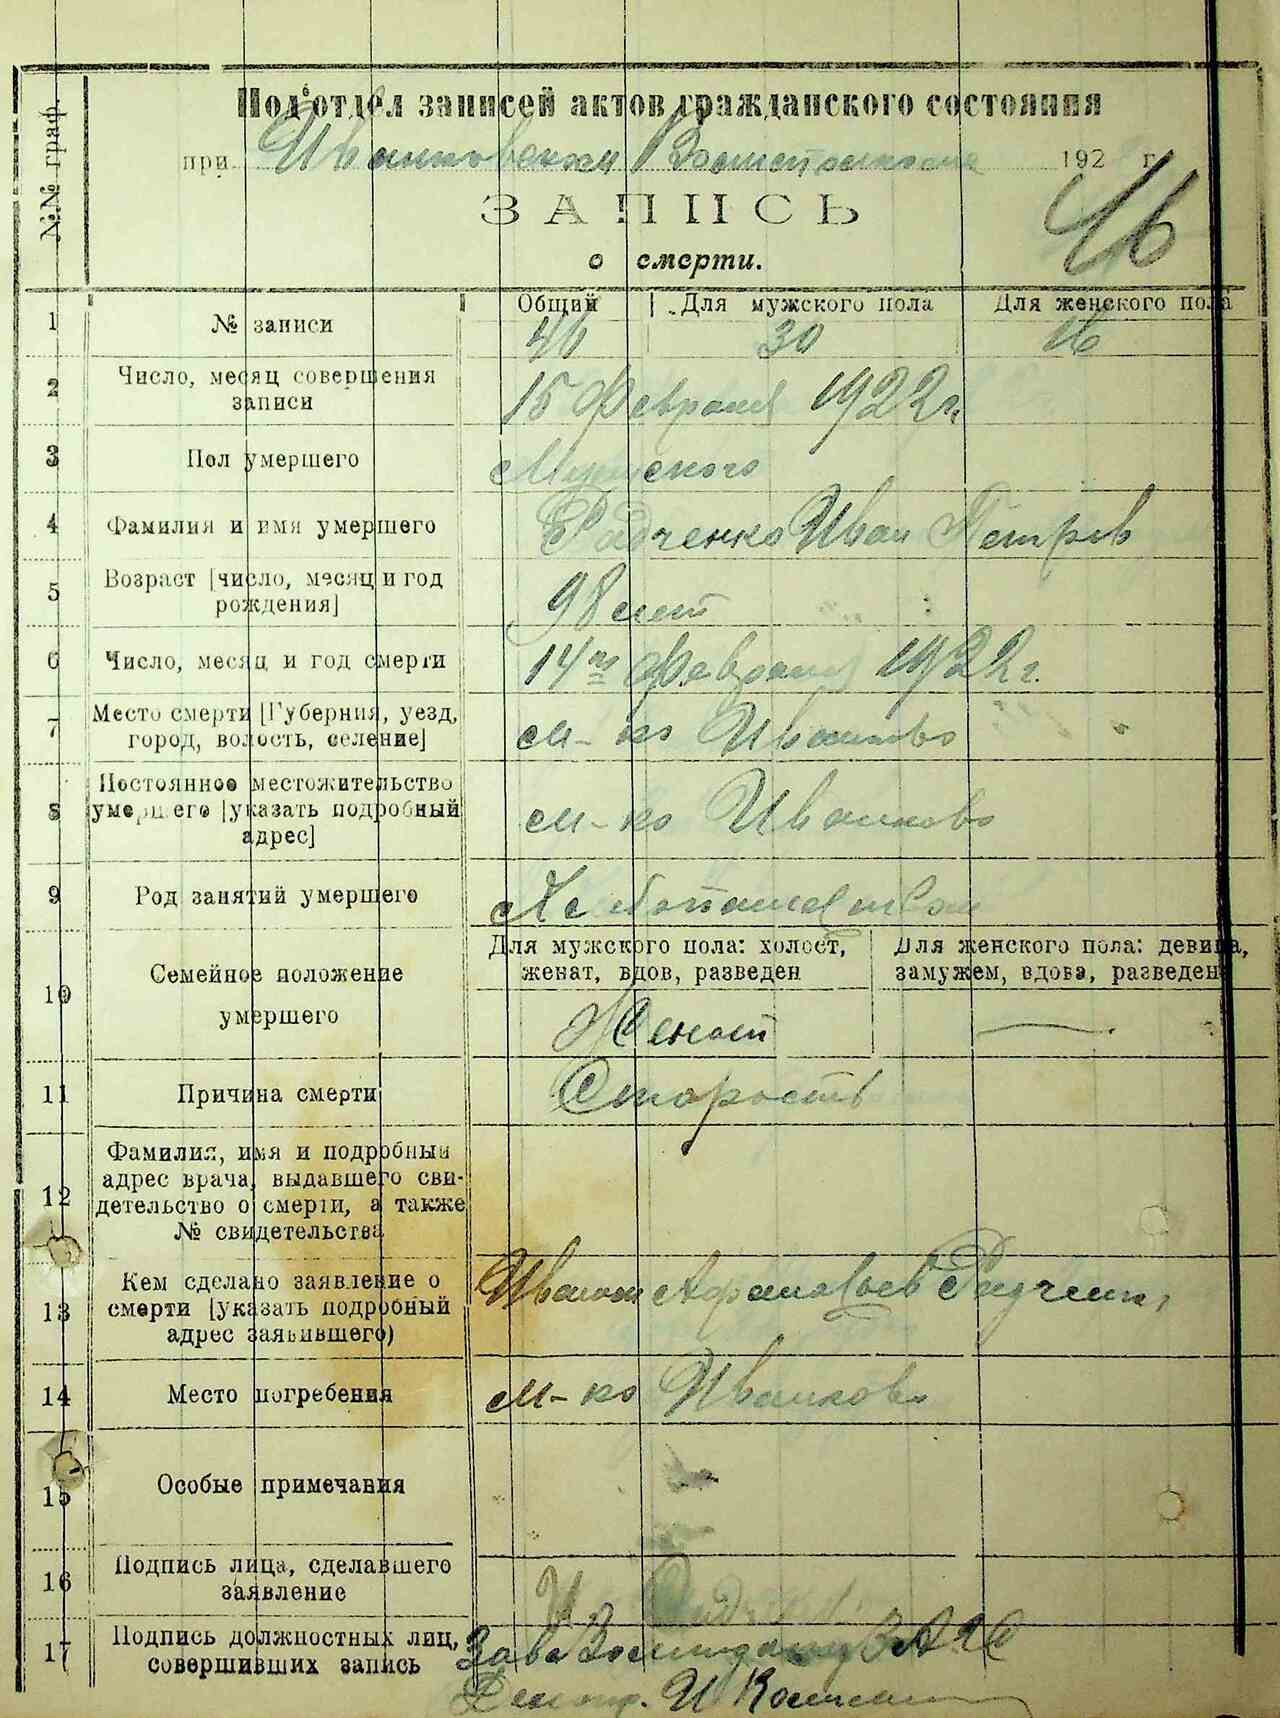 №№ граф
Подотдел записей актов гражданского состояния
при Иванковском 192 г.
ЗАПИСЬ
46
о смерти.
Общий Для мужского пола Для женского пола
1 № записи 46 30 16
2 Число, месяц совершения записи 15 Февраля 1922 г.
3 Пол умершего Мужского
4 Фамилия и имя умершего Радченко Иван Петров
5 Возраст [число, месяц и год рождения] 98 лет
6 Число, месяц и год смерти 14го Февраля 1922 г.
7 Место смерти [Губерния, уезд, город, волость, селение] м-ко Иванково
8 Постоянное местожительство умершего [указать подробный адрес] м-ко Иванково
9 Род занятий умершего Хлебопашеством
10 Семейное положение умершего
Для мужского пола: холост, женат, вдов, разведен
Для женского пола: девица, замужем, вдова, разведен
Женат —
11 Причина смерти Старость
12 Фамилия, имя и подробный адрес врача, выдавшего свидетельство о смерти, а также № свидетельства
13 Кем сделано заявление о смерти [указать подробный адрес заявившего) Иваном
14 Место погребения м-ко Иванково
15 Особые примечания
16 Подпись лица, сделавшего заявление
17 Подпись должностных лиц, совершивших запись Зав. ЗАГС